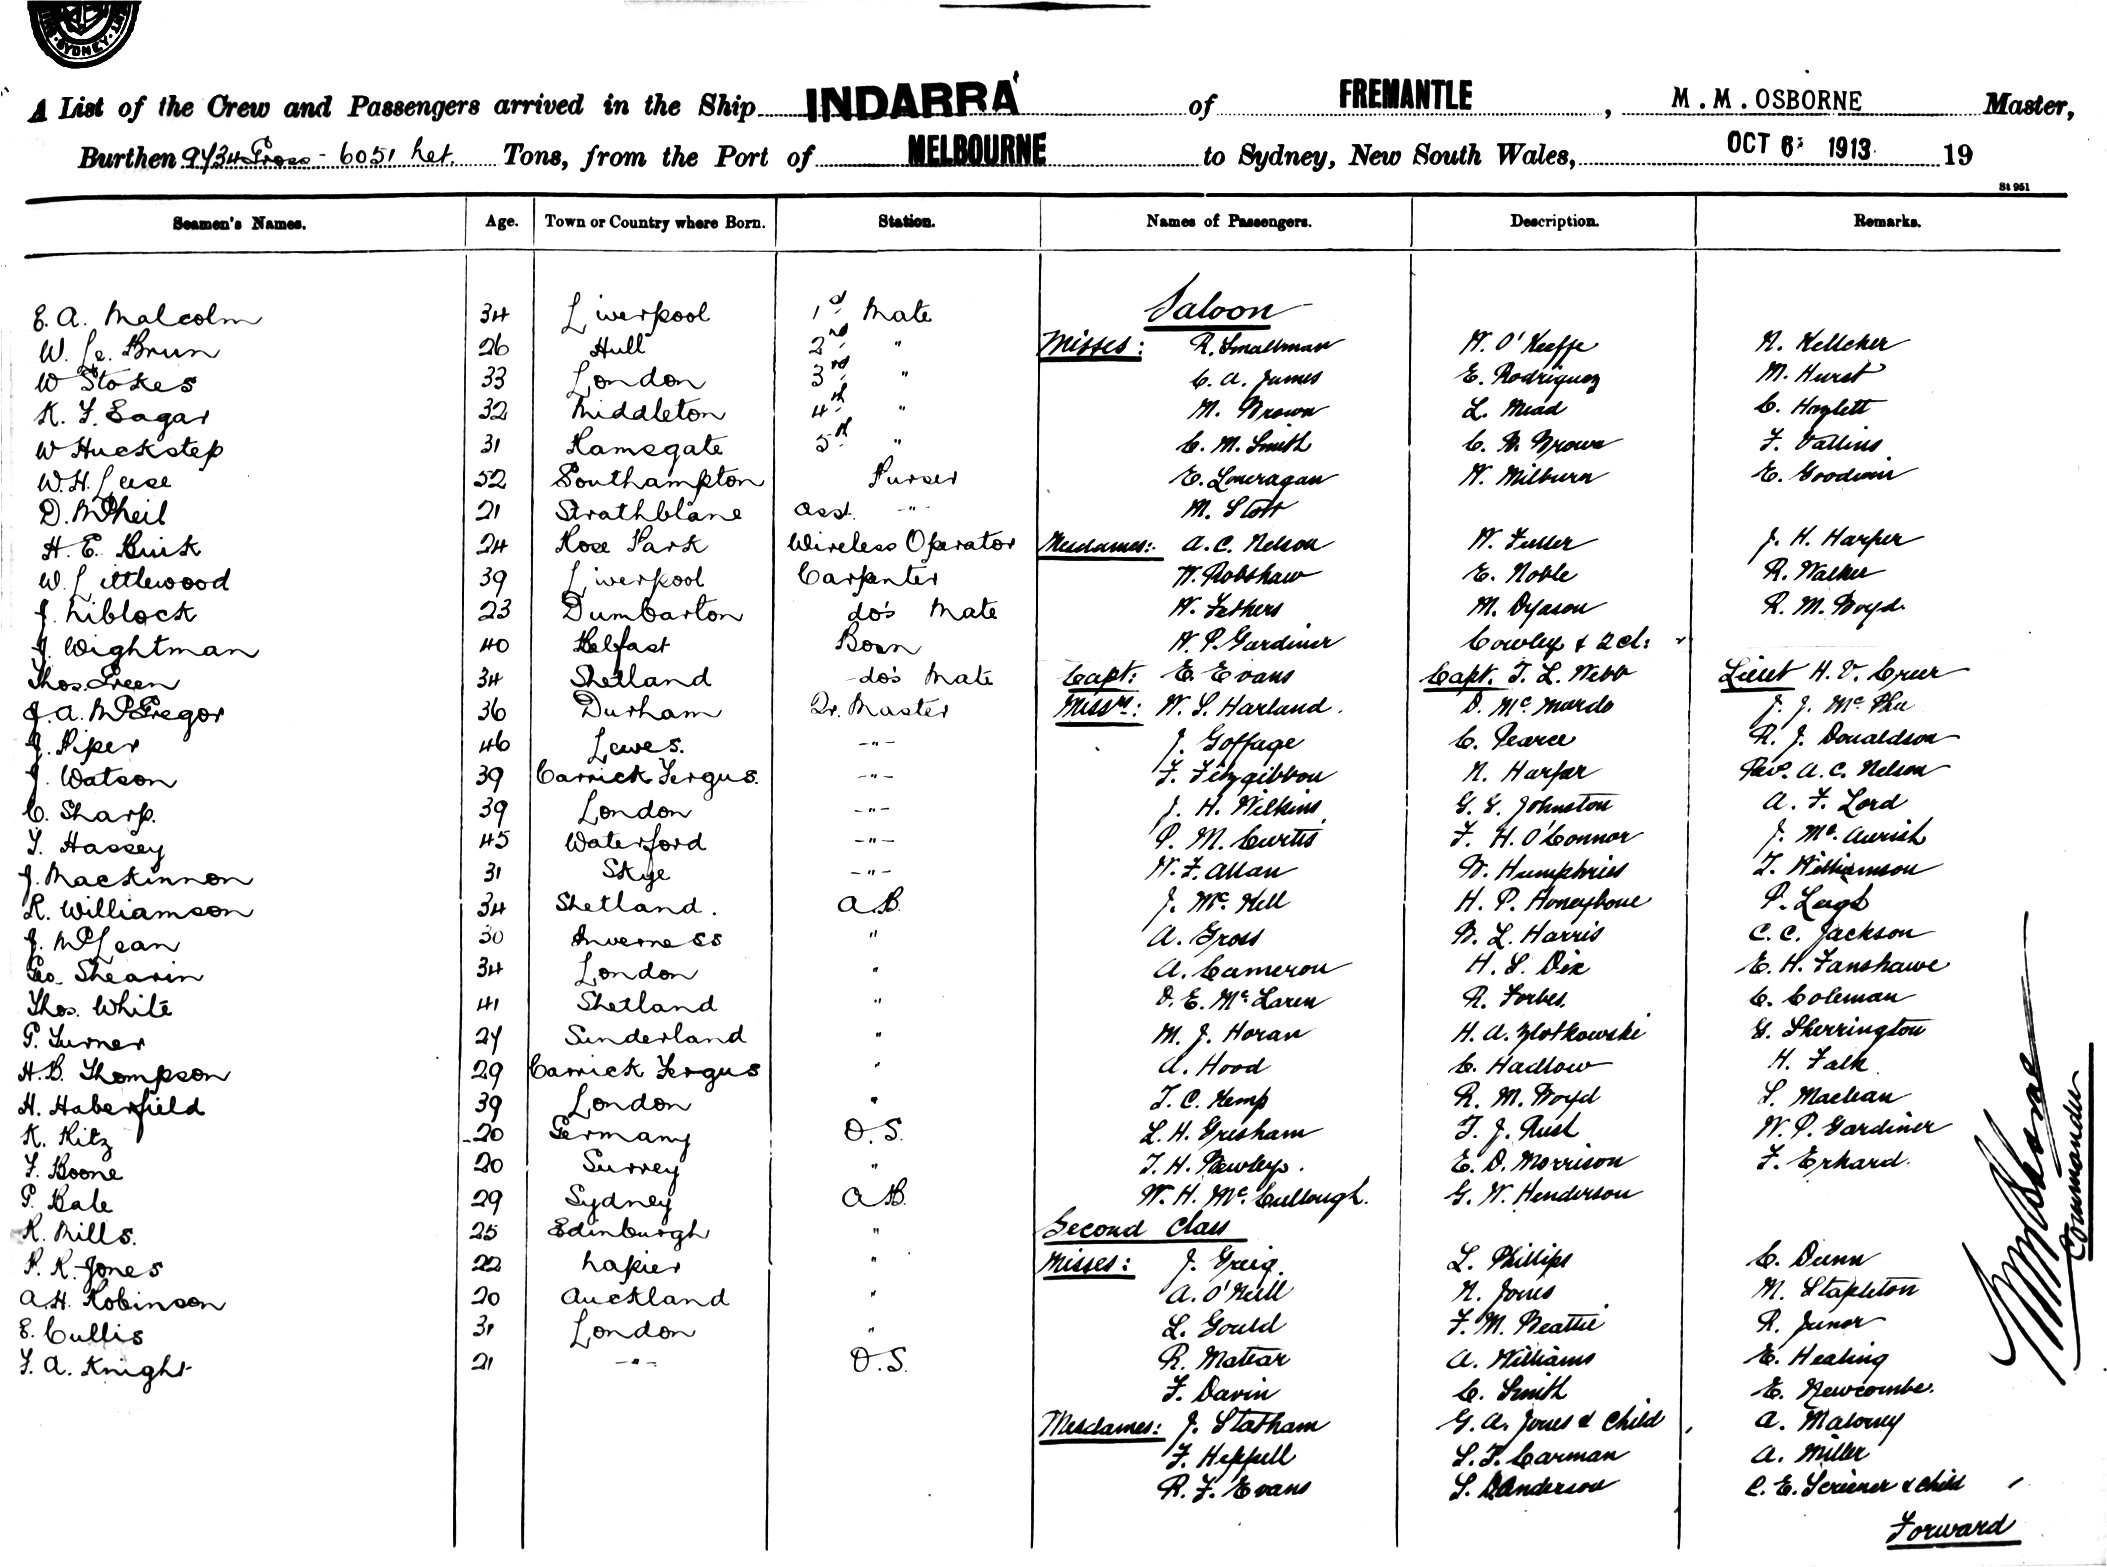 SYDNEY
A List of the Crew and Passengers arrived in the Ship INDARRA of FREMANTLE, M.M. OSBORNE Master,
Burthen 9734 Gross - 6051 Net. Tons, from the Port of MELBOURNE to Sydney, New South Wales, OCT 6: 1913 19
St 951
Seamen's Names. Age. Town or Country where Born. Station. Names of Passengers. Description. Remarks.
Saloon
E. A. Malcolm 34 Liverpool 1st Mate
W. Le. Brun 26 Hull 2nd " Misses: R. Smallman N. O'Keeffe N. Kelleher
W Stokes 33 London 3rd " C. A. James E. Rodriguez M. Hurst
K. F. Eagar 32 Middleton 4th " M. Brown L. Mead C. Hazlett
W Huckstep 31 Ramsgate 5th " C. M. Smith C. B. Brown F. Vallins
W. H. Lease 52 Southampton Purser E. Loneragan W. Milburn E. Goodwin
D. McNeil 21 Strathblane Asst. -"- M. Stott
H. E. Buik 24 Rose Park Wireless Operator Mesdames: A. C. Nelson W. Fuller J. H. Harper
W. Littlewood 39 Liverpool Carpenter W. Robshaw E. Noble R. Walker
J. Niblock 23 Dumbarton do's Mate W. Fethers M. Dyason R. M. Boyd.
J. Wightman 40 Belfast Bosn W. P. Gardiner Cowley & 2 ch:
Thos. Green 34 Shetland do's Mate Capt: E. Evans Capt. T. L. Webb Lieut H. V. Creer
J. A. McGregor 36 Durham Qr. Master Missrs: W. S. Harland. D. McMurdo J. J. McPhee
J. Piper 46 Lewes. -"- J. Goffage C. Pearce R. J. Donaldson
J. Watson 39 Carrick Fergus. -"- F. Fitzgibbon N. Harfar Rev. A. C. Nelson
C. Sharp. 39 London -"- J. H. Wilkins G. G. Johnston A. F. Lord
T. Hassey 45 Waterford -"- P. M. Curtis F. H. O'Connor J. McAurish
J. Mackinnon 31 Skye -"- W. F. Allan W. Humphries T. Williamson
R. Williamson 34 Shetland. A.B. J. McKell H. P. Honeybone P. Leigh
J. McLean 30 Inverness " A. Gross B. L. Harris C. C. Jackson
Geo. Shearin 34 London " A. Cameron H. S. Dix E. H. Fanshawe
Thos. White 41 Shetland " D. E. McLaren R. Forbes. C. Coleman
P. Turner 27 Sunderland " M. J. Horan H. A. Zlotkowski G. Sherrington
H. B. Thompson 29 Carrick Fergus " A. Hood C. Hadlow H. Falk
H. Haberfield 39 London " T. C. Kemp R. M. Boyd S. Maclean
K. Kitz 20 Germany O.S. L. H. Gresham T. J. Rust W. P. Gardiner
F. Boone 20 Surrey " T. H. Newley. E. D. Morrison F. Erhard.
P. Bale 29 Sydney A.B. W. H. McCullough. G. W. Henderson
R. Mills. 25 Edinburgh " Second Class
P. R. Jones 22 Napier " Misses: J. Greig. L. Phillips C. Dunn
A. H. Robinson 20 Auckland " A. O'Neill N. Jones M. Stapleton
E. Cullis 31 London " L. Gould F. M. Beattie R. Junor
F. A. Knight 21 -"- O.S. R. Matear A. Williams E. Healing
F. Davin C. Smith E. Newcombe.
Mesdames: J. Statham G. A. Jones & Child A. Maloney
F. Heppell S. F. Carman A. Miller
R. F. Evans S. D. Anderson C. E. Scriener & child
Forward
MMOsborne
Commander